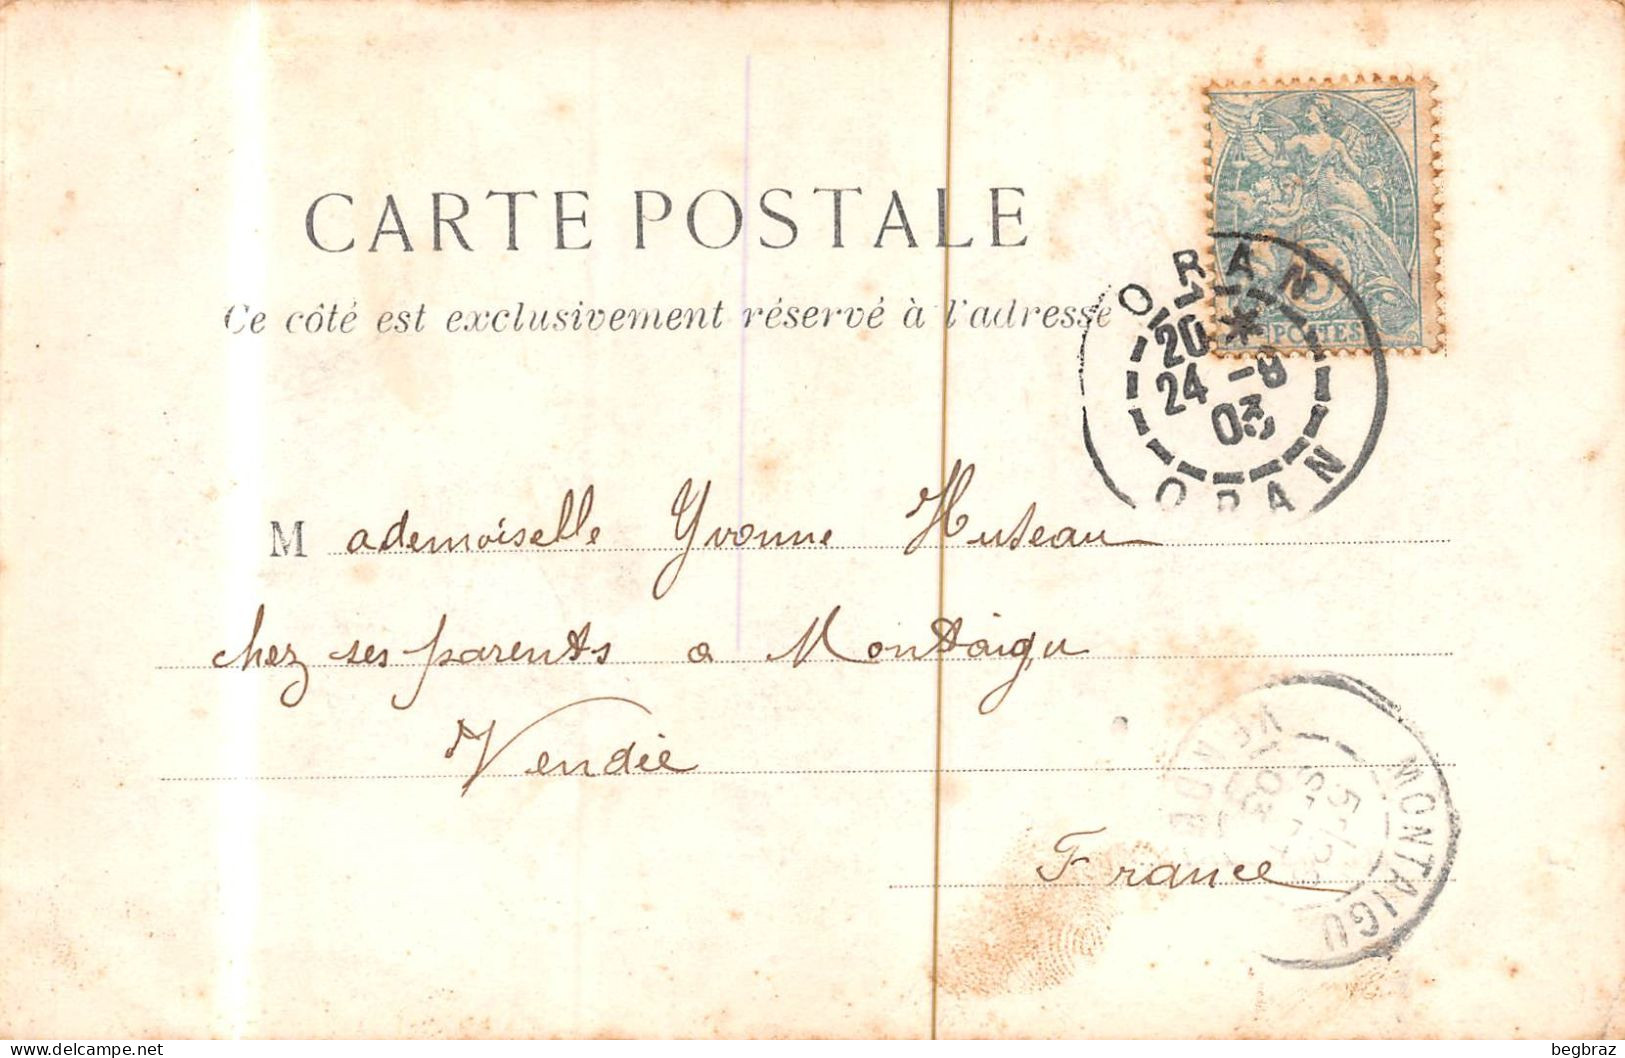 CARTE POSTALE
Ce côté est exclusivement réservé à l'adresse
5
POSTES
ORAN
20 *
24 -8
03
ORAN
Mademoiselle Yvonne Huteau
chez ses parents a Montaigu
Vendée
France
MONTAIGU
VENDEE
03
begbraz